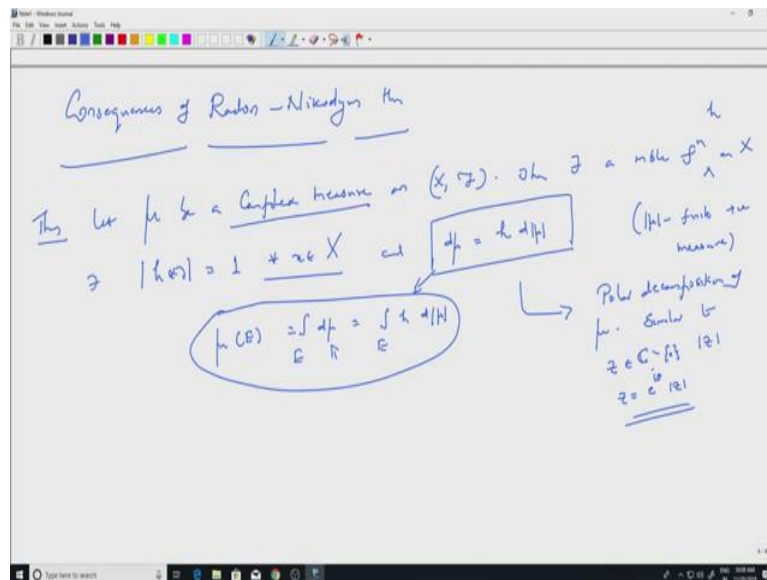 Note1 - Windows Journal
File Edit View Insert Actions Tools Help
Consequences of Radon-Nikodym thm
Thm Let μ be a Complex measure on (X, F). Then ∃ a mble fⁿ h on X
∋ |h(x)| = 1 ∀ x∈ X and dμ = h d|μ|
(|μ| - finite +ve measure)
μ(E) = ∫_E dμ = ∫_E h d|μ|
Polar decomposition of
μ. Similar to
z ∈ C - {0} |z|
z = e^{iθ} |z|
Type here to search
ENG